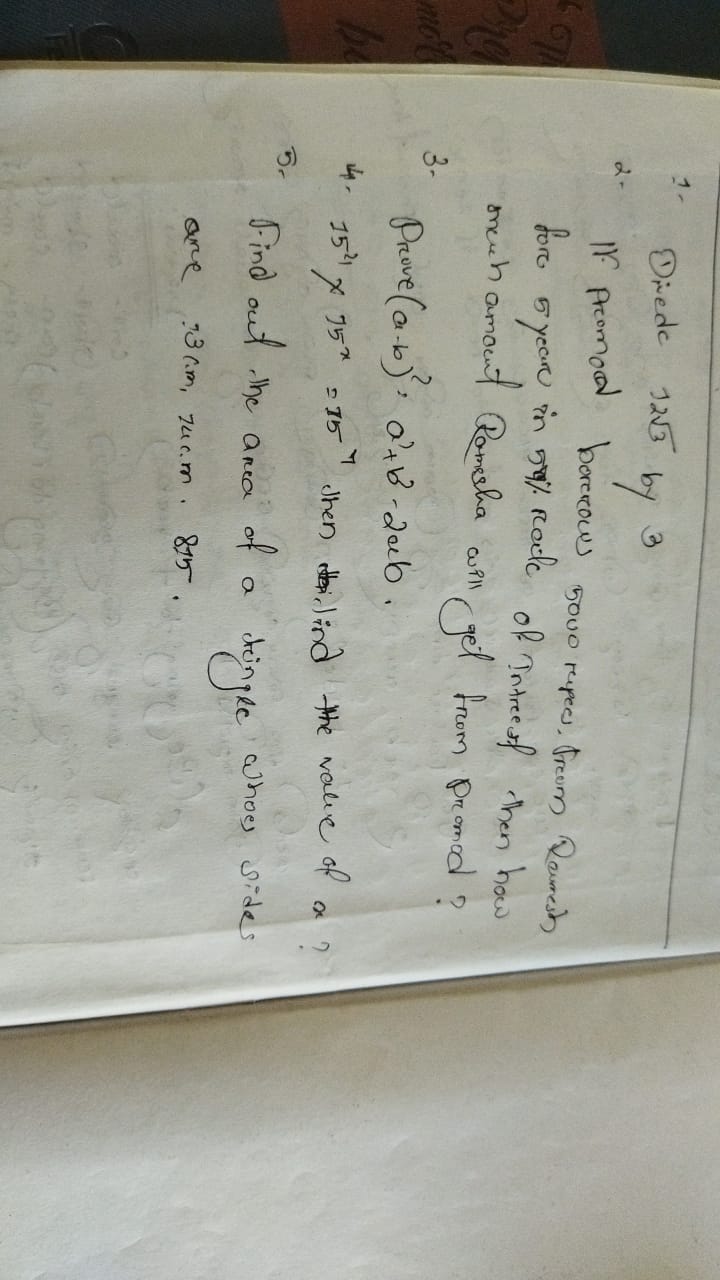 1. Divede 12√3 by 3
2. If promod borrows 5000 rupees. from Ramesh
for 5 years in 5% Rate of Intreest then how
much amount Ramesha will get from promod ?
3. Prove (a-b)² = a²+b²-2ab.
4. 15²¹ × 15ˣ = 15⁷ then find the value of x ?
5. Find out the area of a tringle whoes sides
are 13 c.m, 14 c.m. 815.